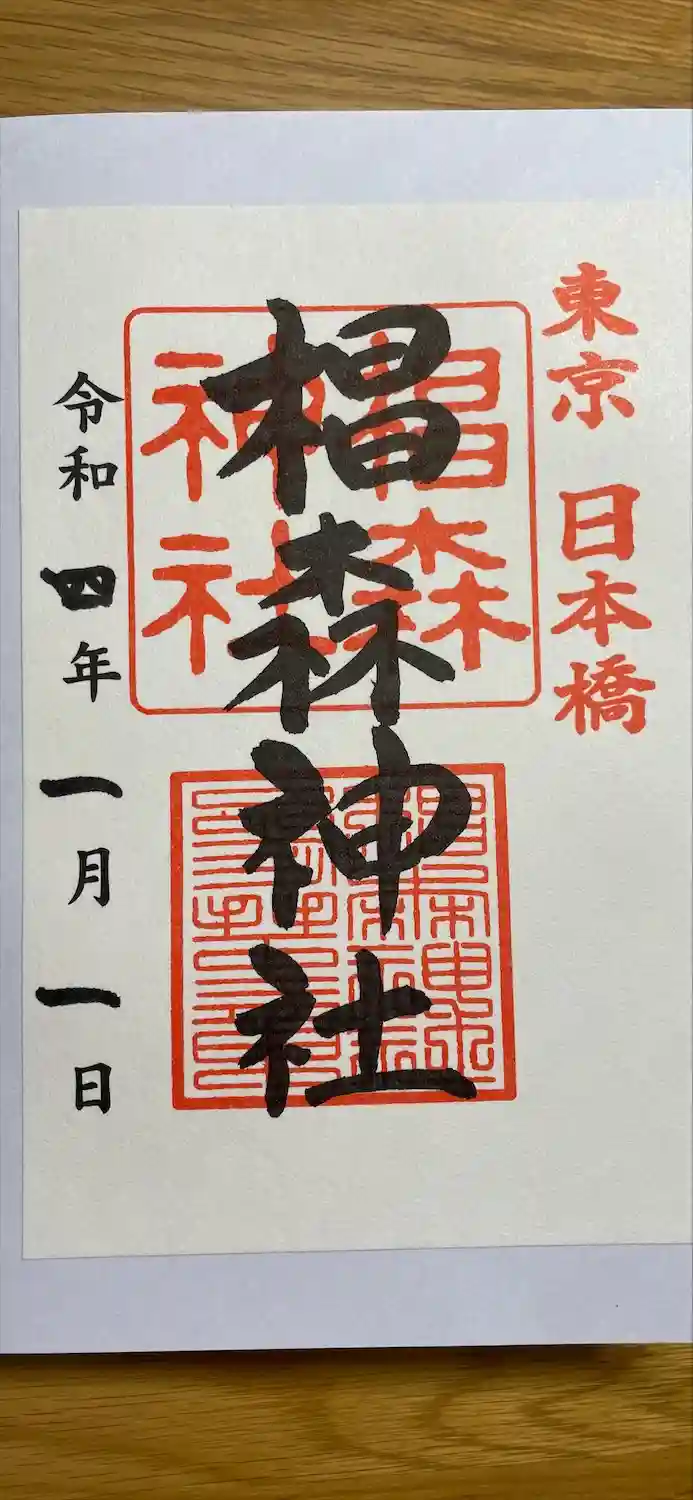 東京 日本橋
椙森神社
椙森
神社
令和四年一月一日